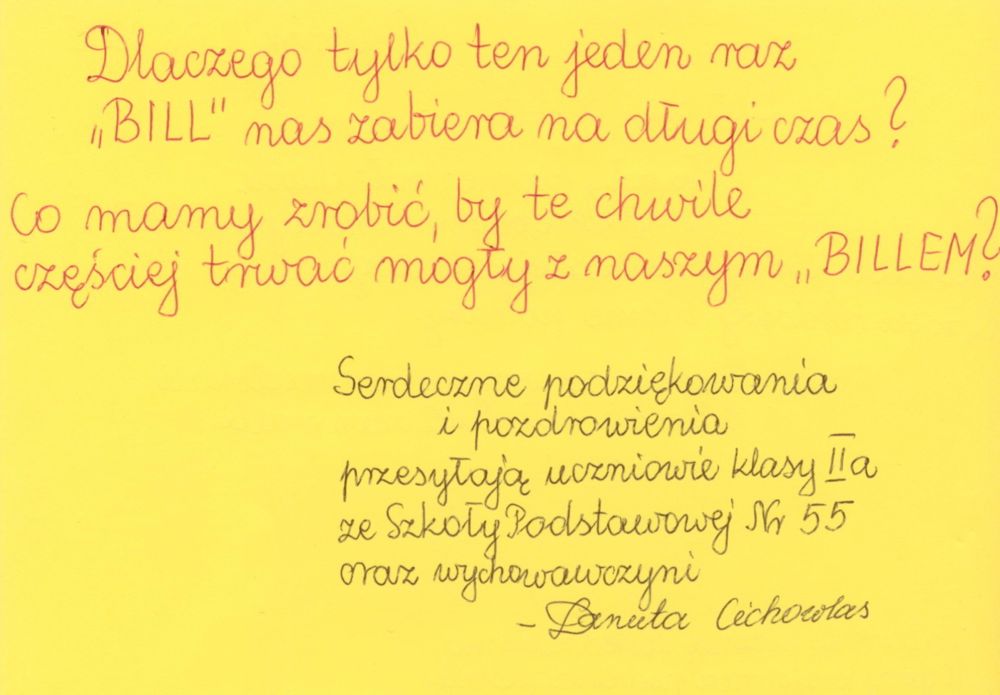 Dlaczego tylko ten jeden raz
„BILL" nas zabiera na długi czas?
Co mamy zrobić, by te chwile
częściej trwać mogły z naszym „BILLEM?
Serdeczne podziękowania
i pozdrowienia
przesyłają uczniowie klasy IIa
ze Szkoły Podstawowej Nr 55
oraz wychowawczyni
- Danuta Cichowlas